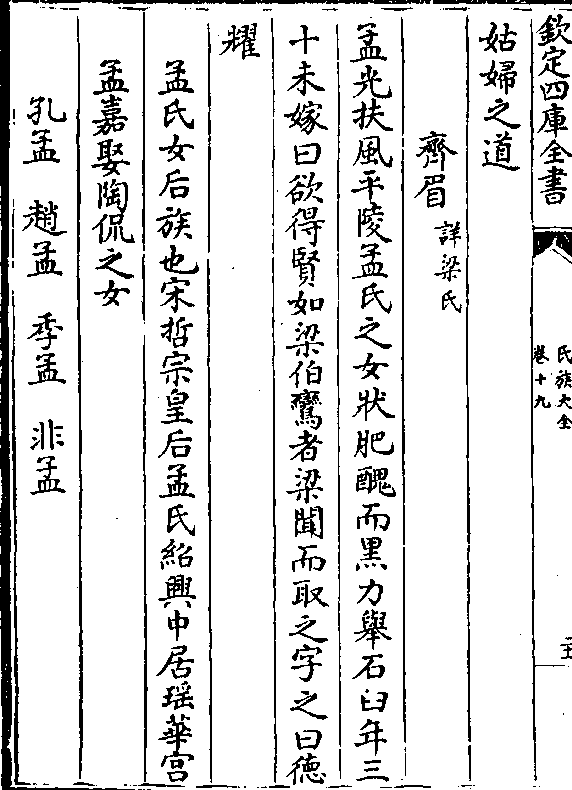 欽定四庫全書
氏族大全
卷十九
姑婦之道
齊眉詳梁氏
孟光扶風平陵孟氏之女狀肥醜而黑力舉石臼年三
十未嫁曰欲得賢如梁伯鸞者梁聞而取之字之曰德
耀
孟氏女后族也宋哲宗皇后孟氏紹興中居瑶華宫
孟嘉娶陶侃之女
孔孟 趙孟 季孟 非孟